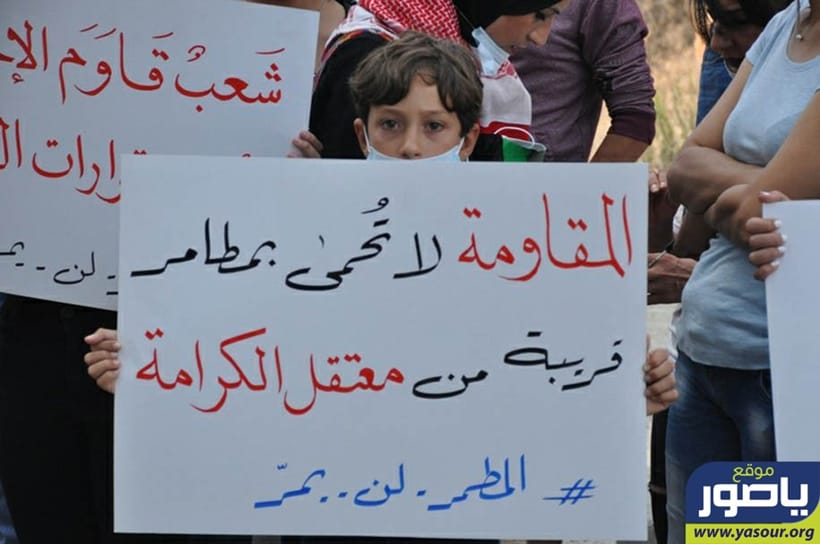 شَعبٌ قَاوَمَ
لن..
المقاومة لا تُحمىٰ بمطامر
قريبة من معتقل الكرامة
# المطمر.لن..يمرّ
موقع
ياصور
www.yasour.org